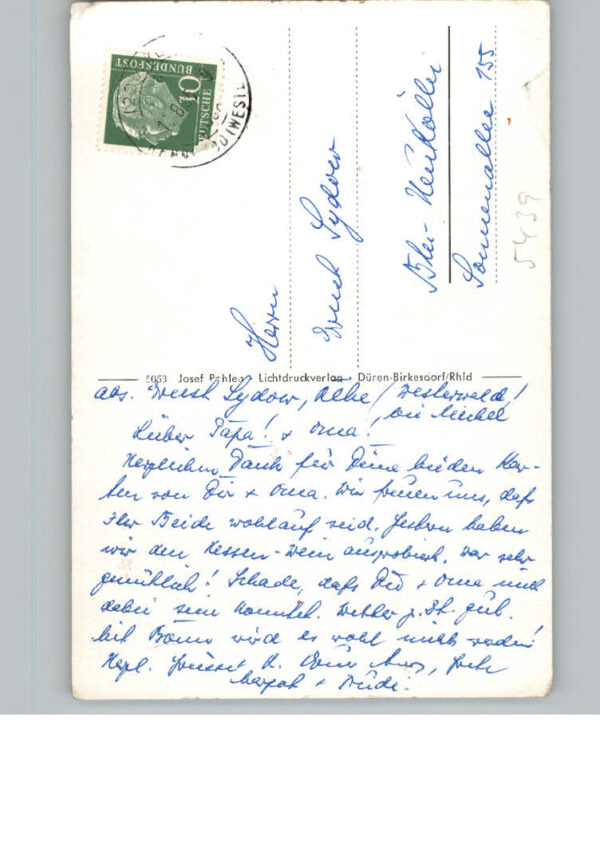 DEUTSCHE
BUNDESPOST
10
(WESTE
Herrn
Sydow
Bln-Neukölln
Sonnenallee 155
5439
5053 Josef Pahlen Lichtdruckverlag Düren-Birkesdorf/Rhld
Abs. Sydow, / Westerwald!
bei Michel
Lieber Papa! + Oma!
Herzlichen Dank für Deine beiden Kar-
ten von Dir + Oma. Wir freuen uns, daß
Ihr Beide wohlauf seid. Gestern haben
wir den Hessen-Wein ausprobiert. War sehr
gemütlich! Schade, daß Du + Oma nicht
dabei sein konntet. Wetter z. Zt. gut.
Mit Bonn wird es wohl nichts werden!
Herzl. Grüsse
Margot + Trudi.